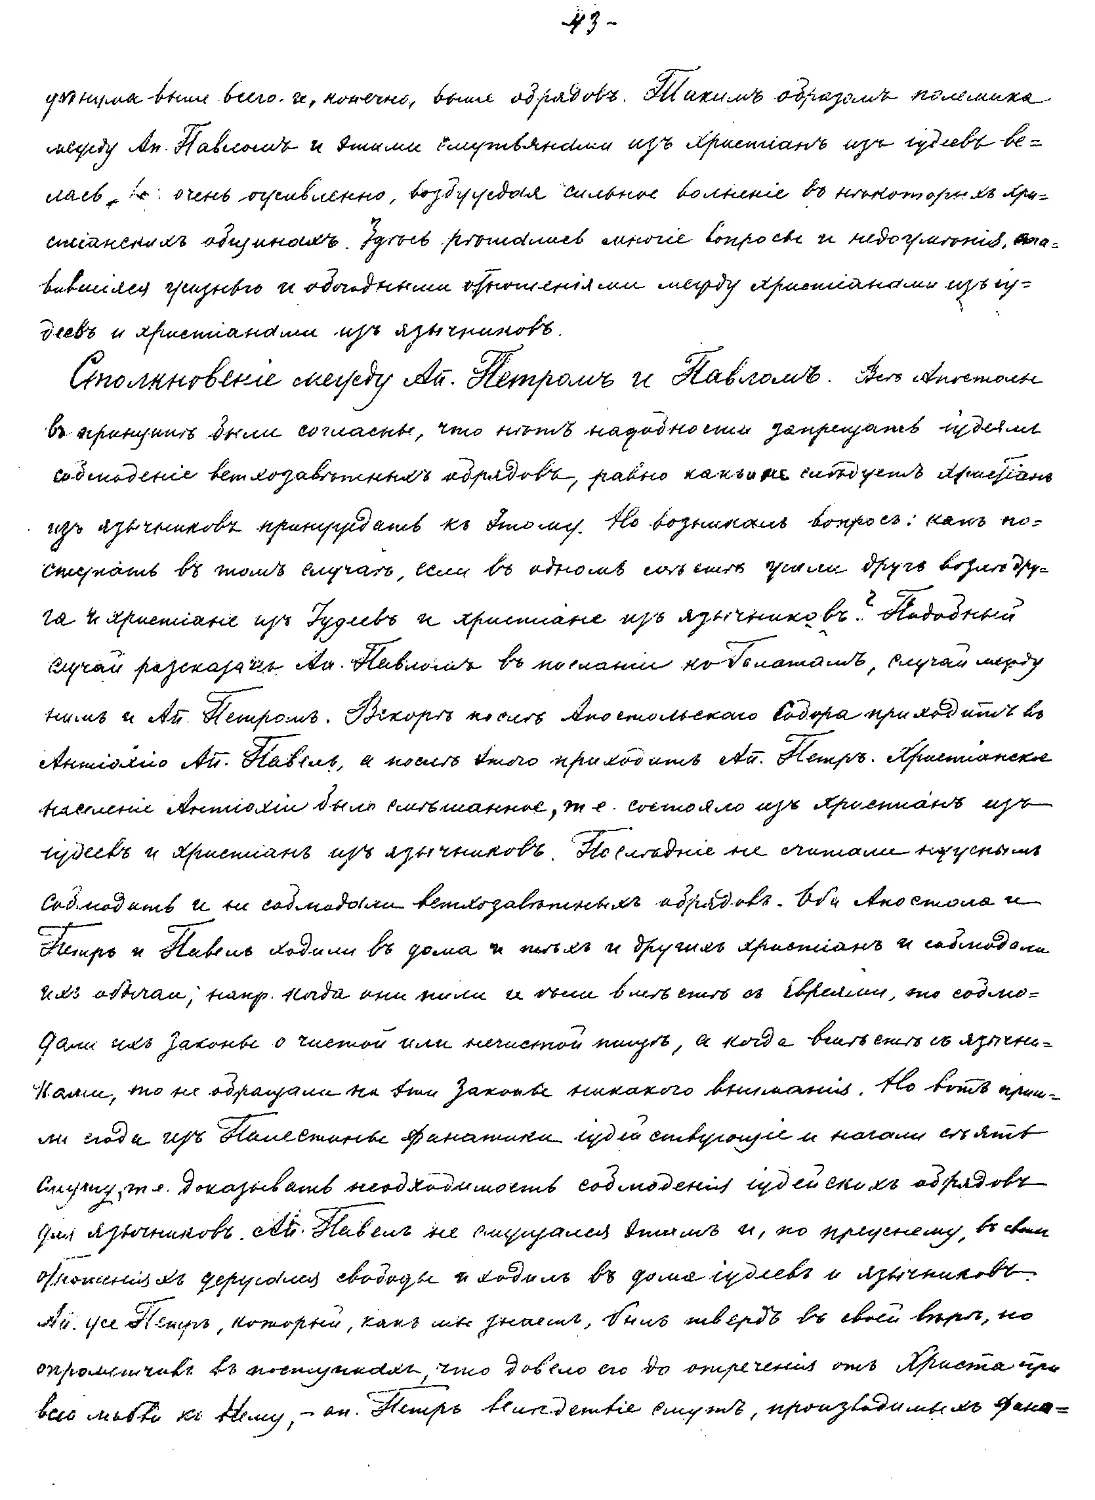 - 43 -
ума выше всего и, конечно, выше обрядовъ. Такимъ образомъ полемика
между Ап. Павломъ и этими смутьянами изъ христіанъ изъ іудеевъ ве=
лась очень оживленно, возбуждая сильное волненіе въ нѣкоторыхъ хри=
стіанскихъ общинахъ. Здѣсь рѣшались многіе вопросы и недоумѣнія, ста=
вившіяся жизнью и обоюдными отношеніями между христіанами изъ іу=
деевъ и христіанами изъ язычниковъ.
Столкновеніе между Ап. Петромъ и Павломъ. Всѣ Апостолы
въ принципѣ были согласны, что нѣтъ надобности запрещать іудеямъ
соблюденіе ветхозавѣтныхъ обрядовъ, равно какъ и не слѣдуетъ христіанъ
изъ язычниковъ принуждать къ этому. Но возникалъ вопросъ: какъ по=
ступать въ томъ случаѣ, если въ одномъ мѣстѣ жили другъ возлѣ дру=
га и христіане изъ Іудеевъ и христіане изъ язычниковъ? Подобный
случай разсказанъ Ап. Павломъ въ посланіи къ Галатамъ, случай между
нимъ и Ап. Петромъ. Вскорѣ послѣ Апостольскаго Собора приходитъ въ
Антіохію Ап. Павелъ, а послѣ этого приходитъ Ап. Петръ. Христіанское
населеніе Антіохіи было смѣшанное, т.е. состояло изъ христіанъ изъ
іудеевъ и христіанъ изъ язычниковъ. Послѣдніе не считали нужнымъ
соблюдать и не соблюдали ветхозавѣтныхъ обрядовъ. Оба Апостола и
Петръ и Павелъ ходили въ дома и тѣхъ и другихъ христіанъ и соблюдали
ихъ обычаи; напр. когда они пили и ѣли вмѣстѣ съ Евреями, то соблю=
дали ихъ законы о чистой или нечистой пищѣ, а когда вмѣстѣ съ язычни=
ками, то не обращали на эти законы никакого вниманія. Но вотъ приш=
ли сюда изъ Палестины фанатики іудействующіе и начали сѣять
смуту, т.е. доказывать необходимость соблюденія іудейскихъ обрядовъ
для язычниковъ. Ап. Павелъ не смущался этимъ и, по прежнему, въ своихъ
отношеніяхъ держался свободы и ходилъ въ дома іудеевъ и язычниковъ.
Ап. же Петръ, который, какъ мы знаемъ, былъ твердъ въ своей вѣрѣ, но
опрометчивъ въ поступкахъ, что довело его до отреченія отъ Христа при
всей любви къ Нему, – ап. Петръ вслѣдствіе смутъ, производимыхъ фана=